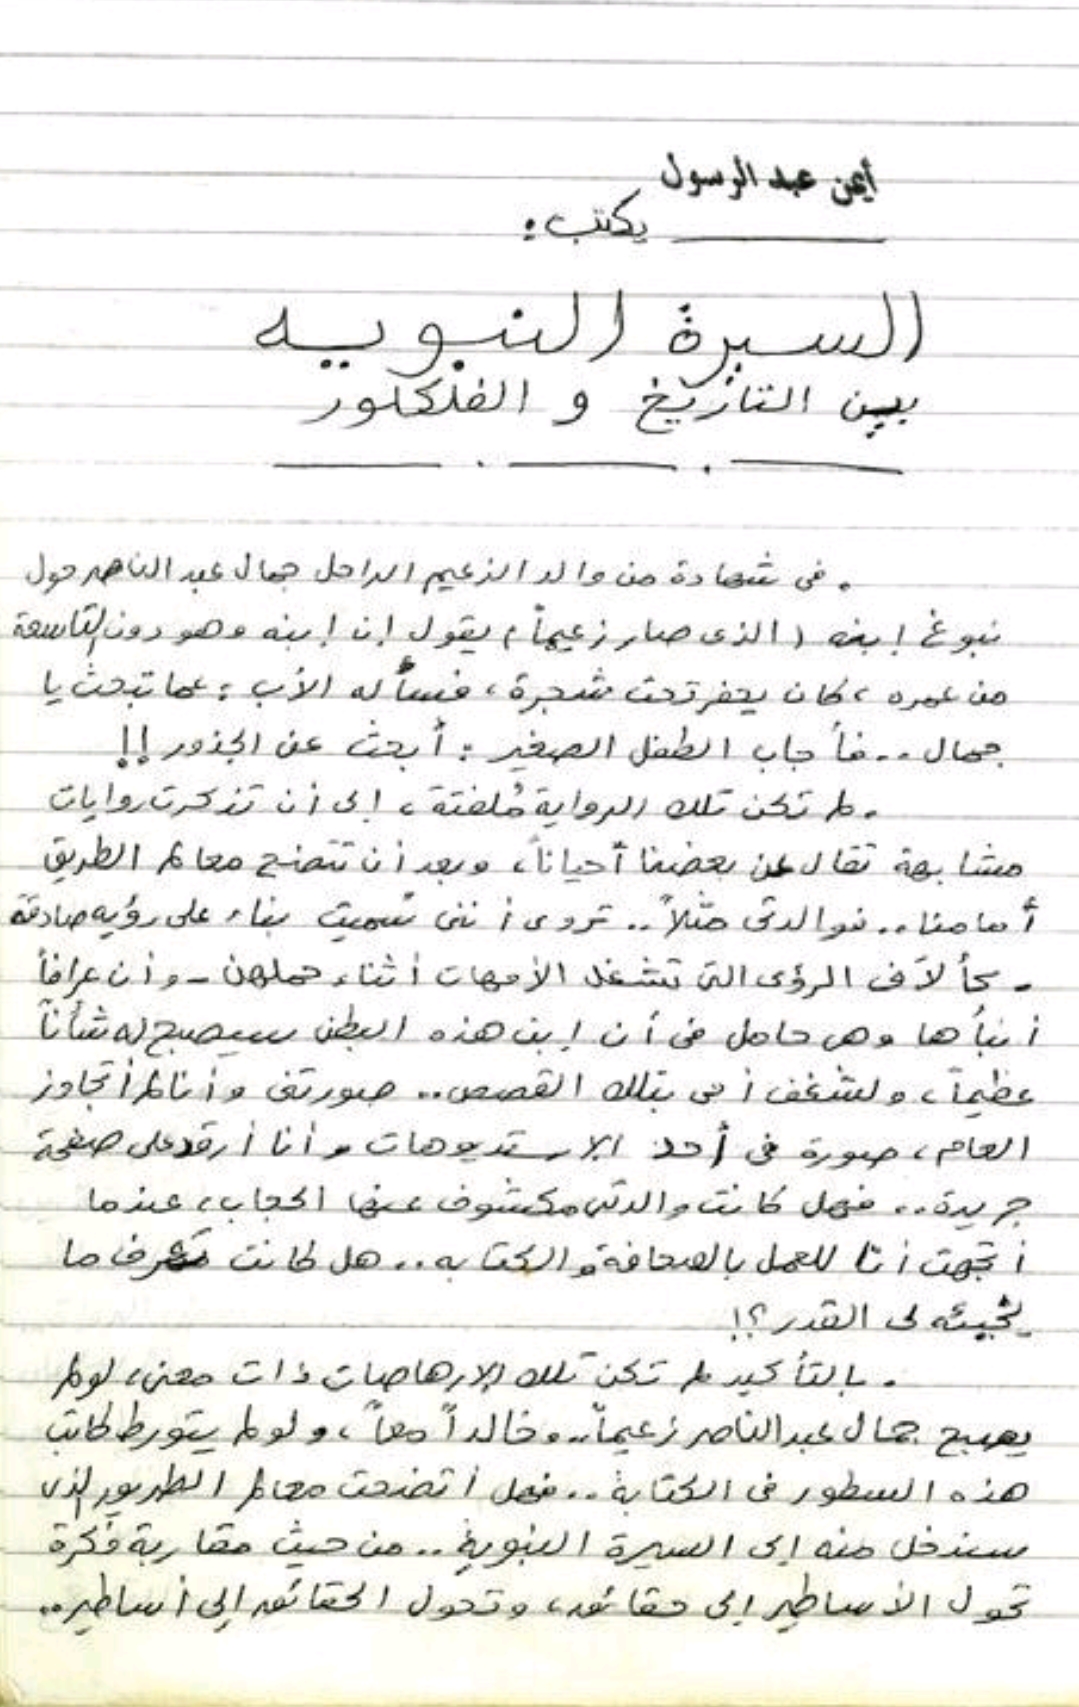 أيمن عبد الرسول
يكتب :
السيرة النبويه
بين التاريخ و الفلكلور
. فى شهادة من والد الزعيم الراحل جمال عبد الناصر حول
نبوغ إبنه ( الذى صار زعيماً ) يقول إن إبنه وهو دون التاسعة
من عمره ، كان يحفر تحت شجرة ، فسأله الأب : عما تبحث يا
جمال .. فأجاب الطفل الصغير : أبحث عن الجذور !!
. لم تكن تلك الرواية مُلفتة ، إلى أن تذكرت روايات
مشابهة تقال عن بعضنا أحياناً ، وبعد أن تتضح معالم الطريق
أمامنا .. فوالدتى مثلاً .. تروى أننى سُميت بناء على رؤيه صادقة
- كآلاف الرؤى التى تشغل الأمهات أثناء حملهن - وأن عرافاً
أنبأها وهى حامل فى أن إبن هذه البطن سيصبح له شأناً
عظيماً ، ولشغف أمى بتلك القصص .. صورتنى وأنا لم أتجاوز
العام ، صورة فى أحد الإستديوهات وأنا أرقد على صفحة
جريدة .. فهل كانت والدتى مكشوف عنها الحجاب ، عندما
أتجهت أنا للعمل بالصحافة والكتابه .. هل كانت تعرف ما
يخبئه لى القدر ؟!
. بالتأكيد لم تكن تلك الإرهاصات ذات معنى ، لو لم
يصبح جمال عبد الناصر زعيماً .. وخالداً معاً ، ولو لم يتورط كاتب
هذه السطور فى الكتابة .. فهل أتضحت معالم الطريق الذى
سندخل منه إلى السيرة النبوية .. من حيث مقاربة فكرة
تحول الأساطير إلى حقائق ، وتحول الحقائق إلى أساطير ..